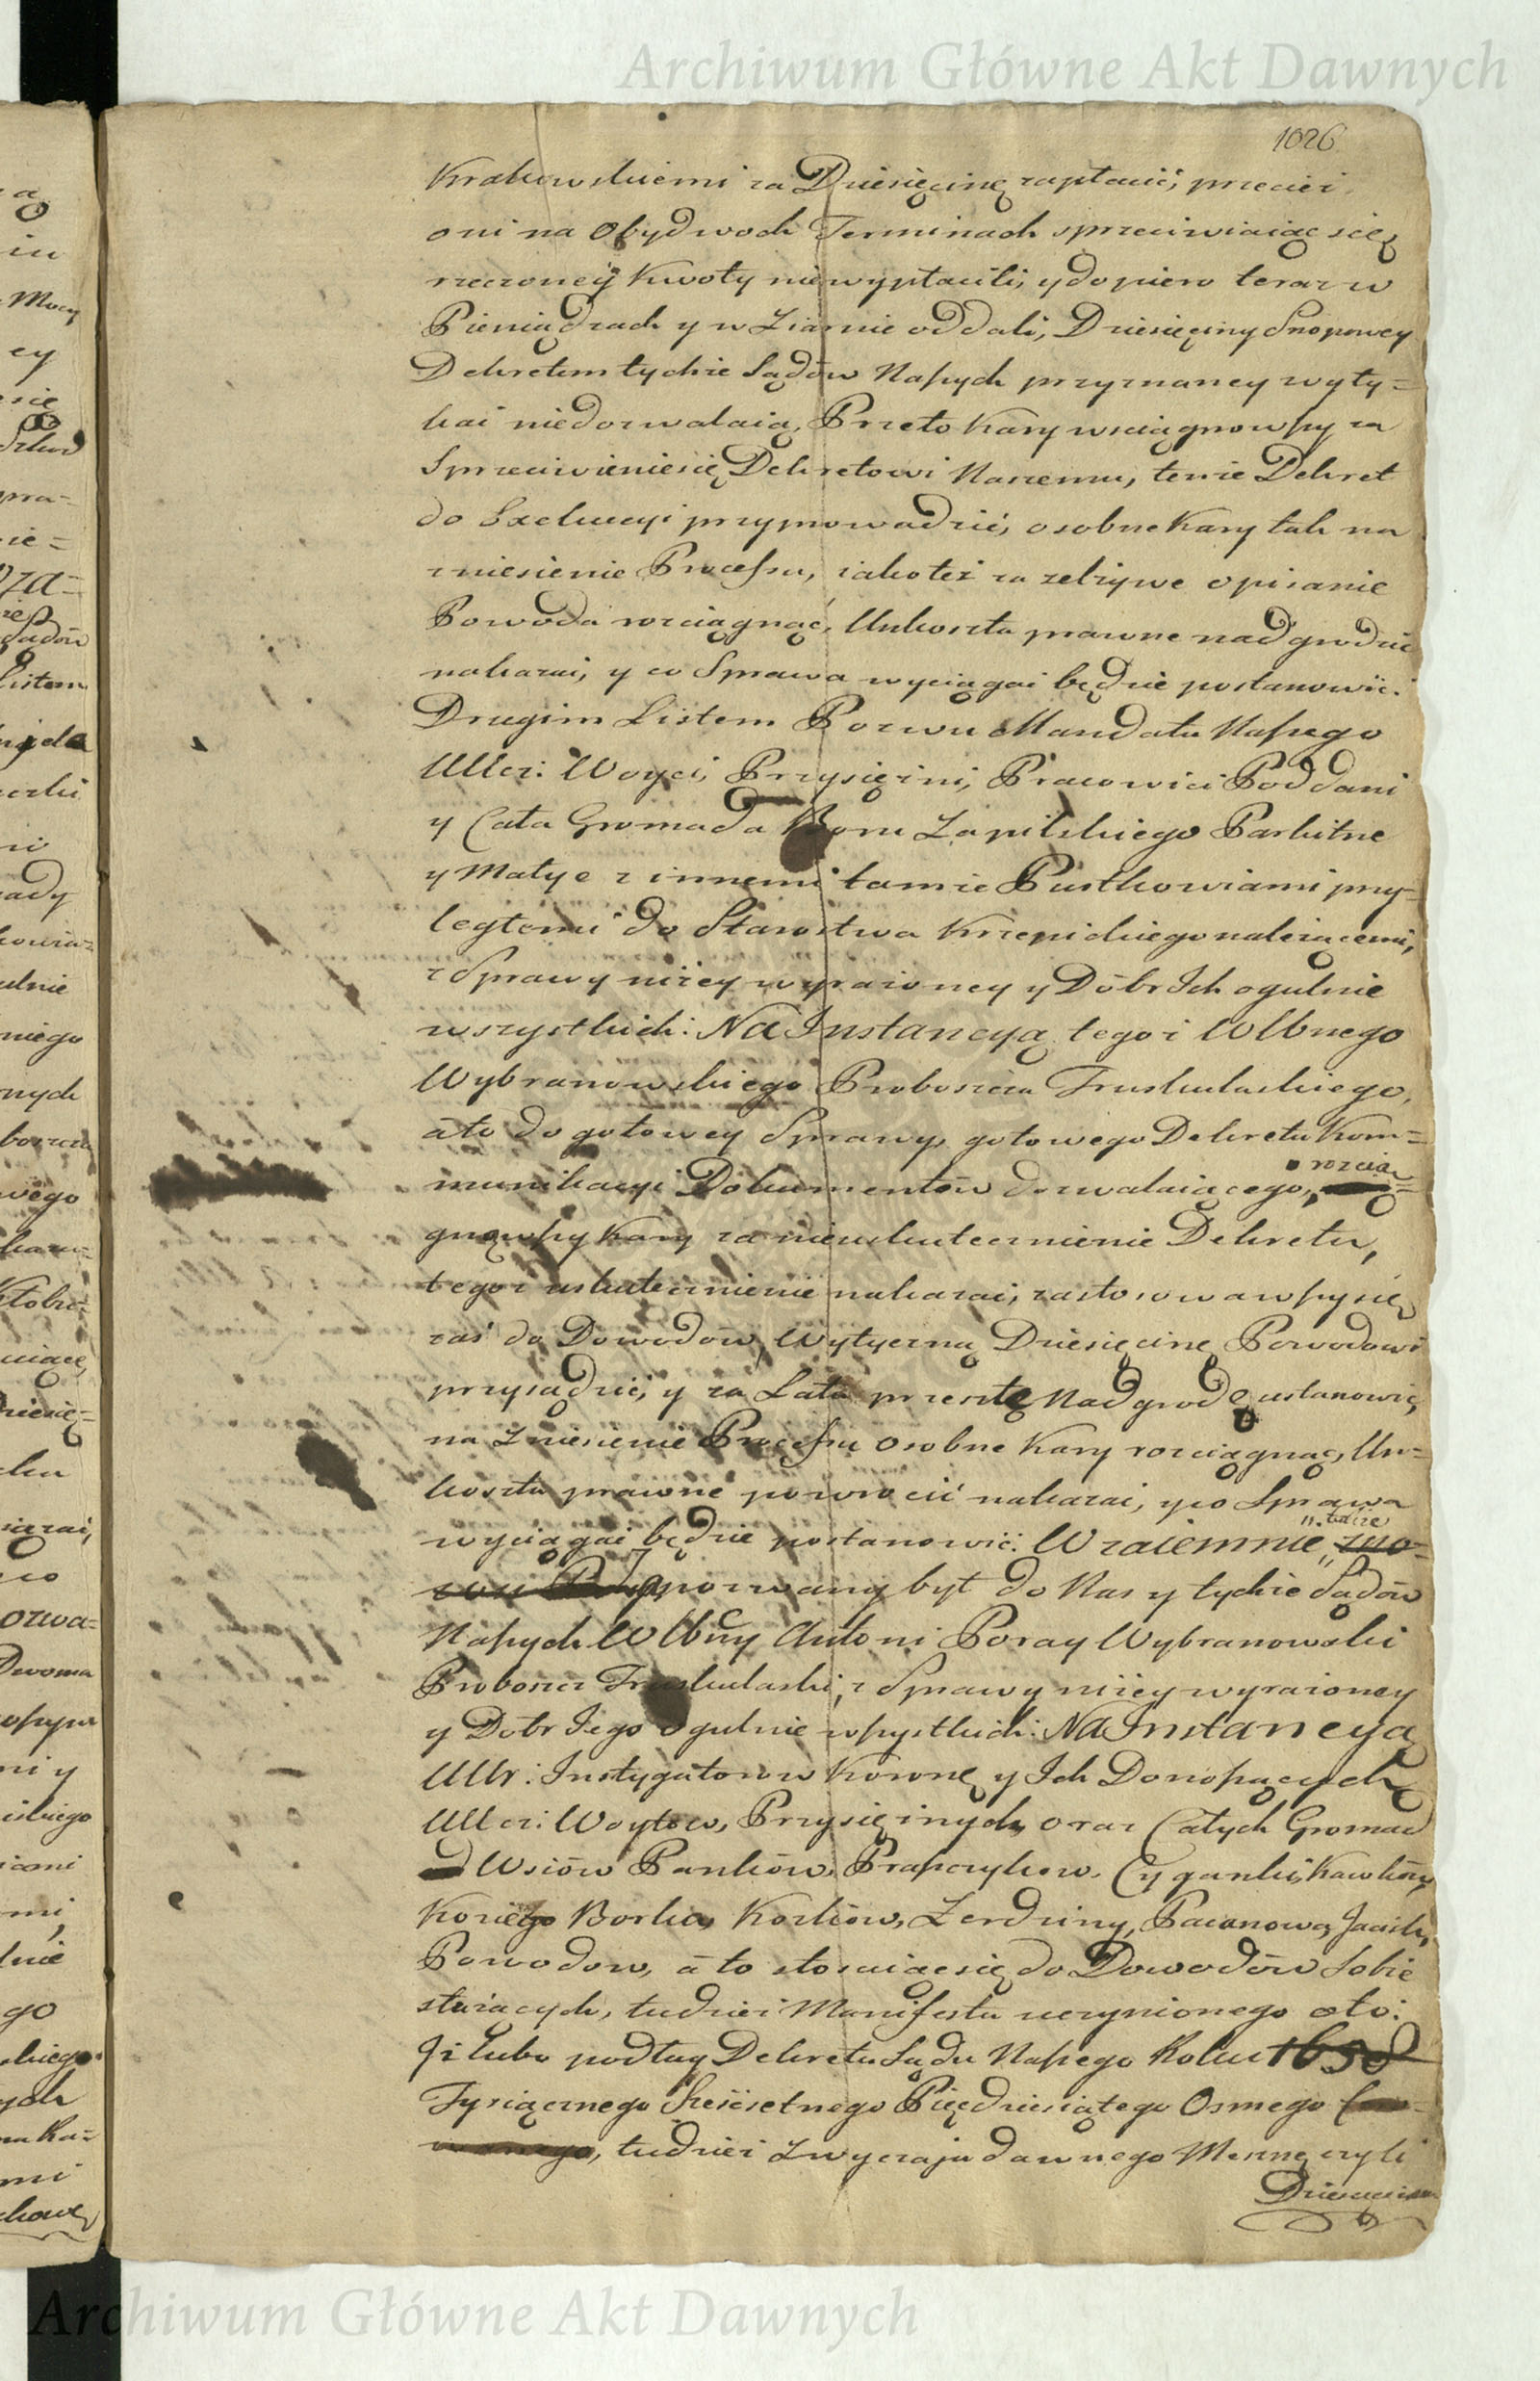 Archiwum Główne Akt Dawnych
1026
Krakowskiemi za Dziesięcinę zapłacić, przecież
oni na Obydwoch Terminach sprzeciwiaiąc się
rzeczoney Kwoty niewypłacili, y dopiero teraz w
Pieniądzach y w Ziarnie oddali, Dziesięciny Snopowey
Dekretem tychże Sądów Naszych przyznaney wyty=
kać niedozwalaią, Przeto Kary wsciągnowszy za
Sprzeciwieniesię Dekretowi Naszemu, tenże Dekret
do Exekucyi przyprowadzić, osobne Kary tak na
zniesienie Processu, iakoteż za zelżywe opisanie
Powoda rozciągnąć, Unkoszta prawne nadgrodzić
nakazać, y co Sprawa wyciągać będzie postanowić.
Drugim Listem Pozwu Mandatu Naszego
Uczci: Woyci, Przysiężni, Pracowici Poddani
y Cała Gromada Boru Zapilskiego Parkitne
y Małye z innemi tamże Pustkowiami przy=
ległemi do Starostwa Krzepickiego należącemi,
z Sprawy niżey wyrażoney y Dóbr Ich ogulnie
wszystkich: Na Instancyą tegoż WWnego
Wybranowskiego Proboszcza Truskulaskiego,
a to do gotowey Sprawy, gotowego Dekretu Kom=
munikacyi Dokumentów dozwalaiącego, rozcią=
gnąwszy Kary za nieuskutecznienie Dekretu,
tegoż uskutecznienie nakazać, zastosowawszy się
zaś do Dowodów, Wytyczną Dziesięcinę Powodowi
przysądzić, y za Lata przeszłe Nadgrodę ustanowić,
na Zniesienie Processu Osobne Kary rozciągnąć, Un=
koszta prawne powrócić nakazać, y co Sprawa
wyciągać będzie postanowić: Wzaiemnie także zno=
wu pozwany był do Nas y tychże Sądów
Naszych WWny Antoni Poray Wybranowski
Proboszcz Truskulaski, z Sprawy niżey wyrażoney
y Dóbr Jego ogulnie wszystkich: Na Instancyą
UUr: Instygatorow Koronę y Ich Donoszących
Uczci: Woytow, Przysiężnych, oraz Całych Gromad
Wsiów Pankōw, Praszczykow, Cyganki, Kawków,
Koziego Borku, Kozłów, Zerdziny, Pacanowa, Jaciska,
Powodow, a to stosuiąc się do Dowodów Sobie
służących, tudzież Manifestu uczynionego oto:
Iż lubo podług Dekretu Sądu Naszego Roku 1658
Tysiącznego Sześćsetnego Pięćdziesiątego Osmego
tudzież Zwyczaju dawnego Mesznę czyli
Dziesięcinę
Archiwum Główne Akt Dawnych